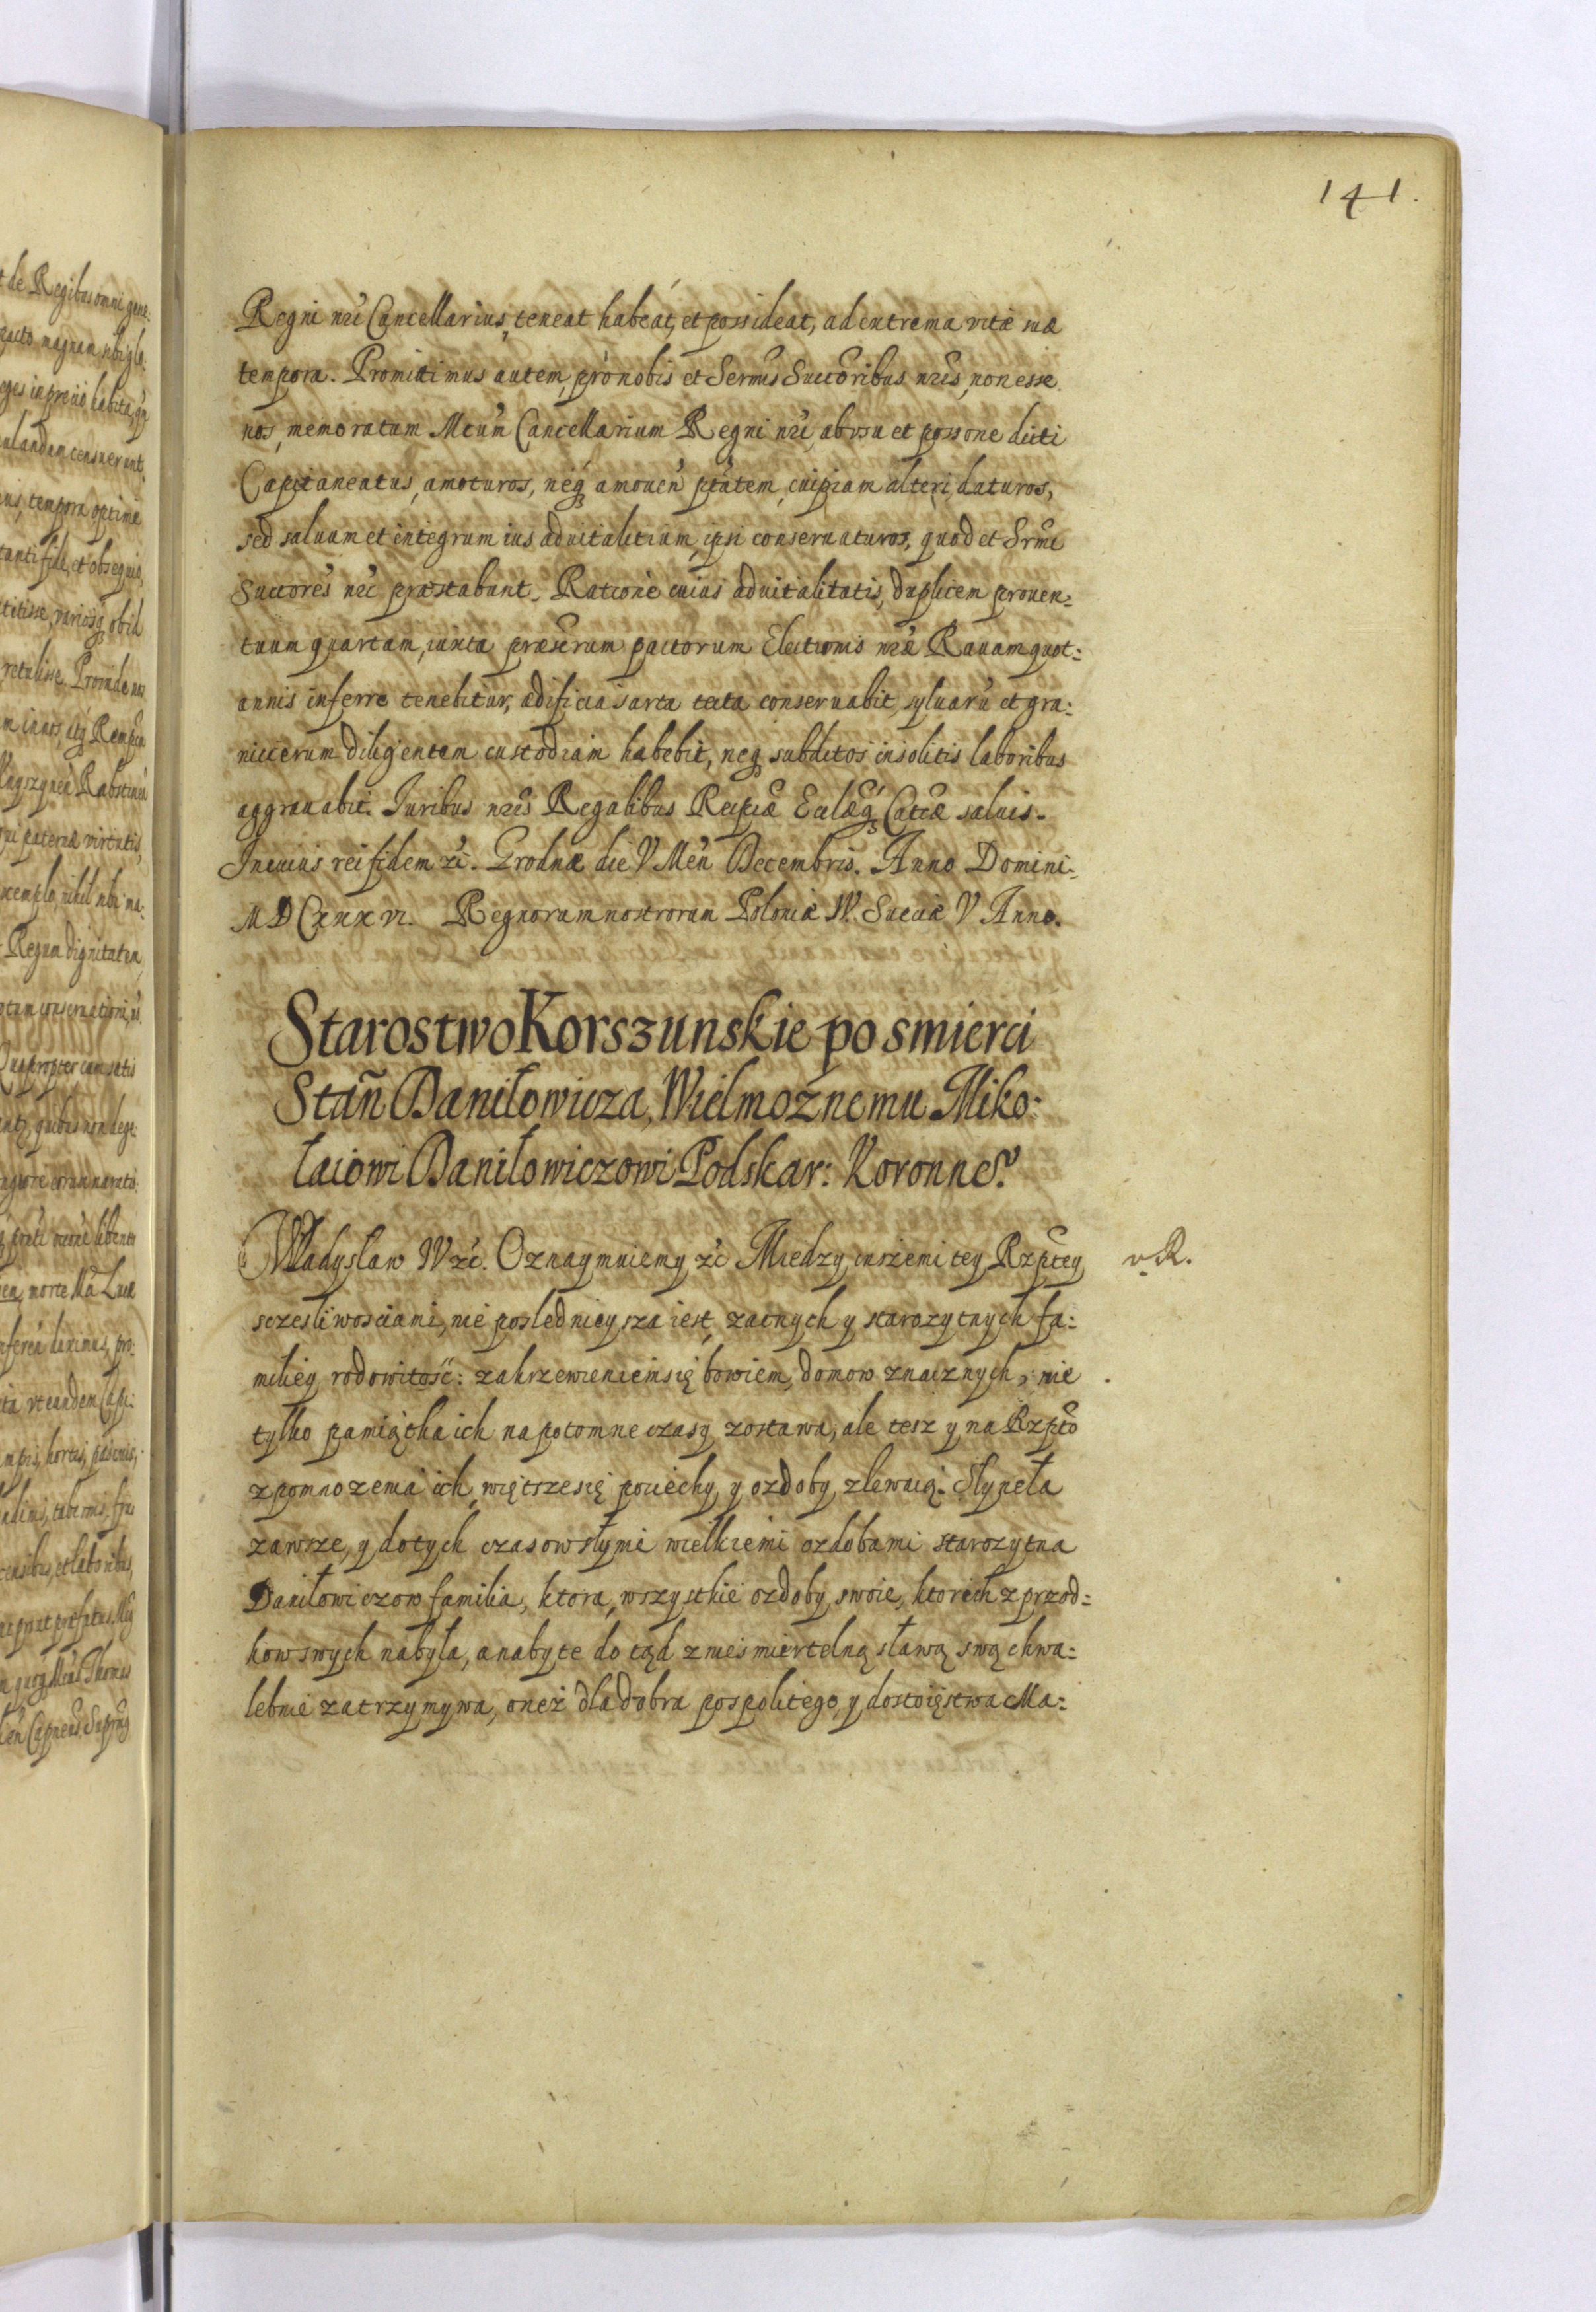 141.
Regni nri Cancellarius, teneat habeat, et possideat, ad extrema vitæ suæ
tempora. Promittimus autem, pro nobis et Sermis Succoribus nris, non esse
nos, memoratum Mcum Cancellarium Regni nri, ab vsu et possone dicti
Capitaneatus, amoturos, neq amouen ptatem, cuipiam alteri daturos,
sed saluum et integrum ius aduitalitium, ipsi conseruaturos, quod et Srmi
Succores nri præstabunt. Ratione cuius aduitalitatis, duplicem prouen:
tuum quartam, iuxta præscrum pactorum Electionis nræ Rauam quot:
annis inferre tenebitur, ædificia sarta tecta conseruabit, syluaru et gra:
niecierum diligentem custodiam habebit, neq subditos insolitis laboribus
aggrauabit. Iuribus nris Regalibus Reipcæ Ecclæq Catcæ saluis.
In cuius rei fidem zc. Grodnæ die V Men Decembris. Anno Domini
MDCXXXVI. Regnorum nostrorum Poloniæ IV. Sueciæ V Anno.
Starostwo Korszunskie po smierci
Stan Daniłowicza, Wielmoznemu Miko:
łaiowi Daniłowiczowi Podskar: Koronne.
Władysław IV zc. Oznaymuiemy zc Miedzy inszemi tey Rzptey
v. R.
sczesliwosciami, nie poslednieysza iest, zacnych y starozytnych fa:
miliey rodowitość: zakrzewieniem się bowiem, domow znacznych, nie
tylko pamiątka ich na potomne czasy zostawa, ale tesz y na Rzptą
z pomnozenia ich, więtsze się pociechy, y ozdoby, zlewaią. Słyneła
zawsze, y do tych czasow słynie wielkiemi ozdobami starozytna
Daniłowiczow familia, ktora, wszystkie ozdoby, swoie, ktorich z przod:
kow swych nabyła, a nabyte do tąd z niesmiertelną sławą swą chwa:
lebnie zatrzymywa, oneż dla dobra pospolitego, y dostoięstwa Ma: